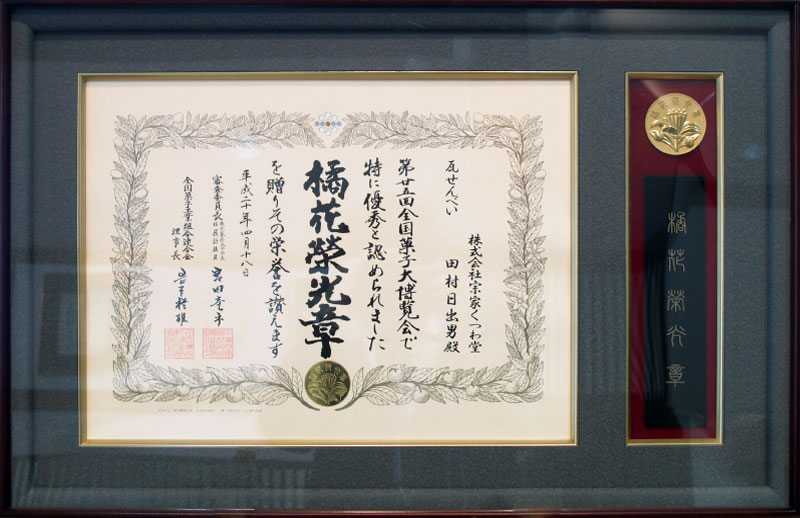 株式会社宗家くつわ堂
田村日出男殿
瓦せんべい
第廿五回全国菓子大博覧会で
特に優秀と認められました
橘花榮光章
を贈りその栄誉を讃えます
平成二十年四月十八日
審査委員長
全国菓子工業組合連合会
理事長
橘花榮光章